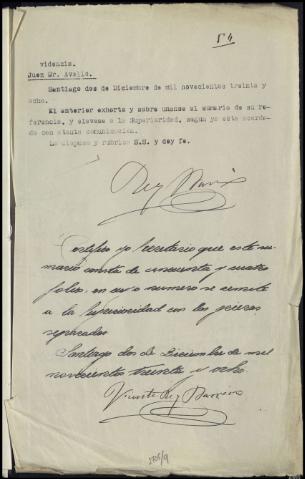 54
videncia.
Juez Sr. Avello.
Santiago dos de Diciembre de mil novecientos treinta y
ocho.
El anterior exhorto y sobre unanse al sumario de su re-
ferencia, y elevese a la Superioridad, segun ya esta acorda-
do con atenta comunicación.
Lo dispuso y rubrica S.S. y doy fe.
Certifico yo Secretario que este su-
mario consta de cincuenta y cuatro
folios, en cuyo numero se remite
a la Superioridad con las piezas
separadas.
Santiago dos de Diciembre de mil
novecientos treinta y ocho.
Vicente Rey